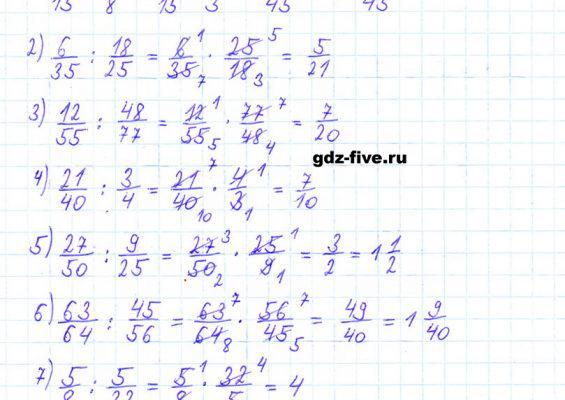 2) 6/35 : 18/25 = 6 1/35 7 · 25 5/18 3 = 5/21
3) 12/55 : 48/77 = 12 1/55 5 · 77 7/48 4 = 7/20
gdz-five.ru
4) 21/40 : 3/4 = 21 7/40 10 · 4 1/3 1 = 7/10
5) 27/50 : 9/25 = 27 3/50 2 · 25 1/9 1 = 3/2 = 1 1/2
6) 63/64 : 45/56 = 63 7/64 8 · 56 7/45 5 = 49/40 = 1 9/40
7) 5/8 : 5/32 = 5 1/8 · 32 4/5 = 4